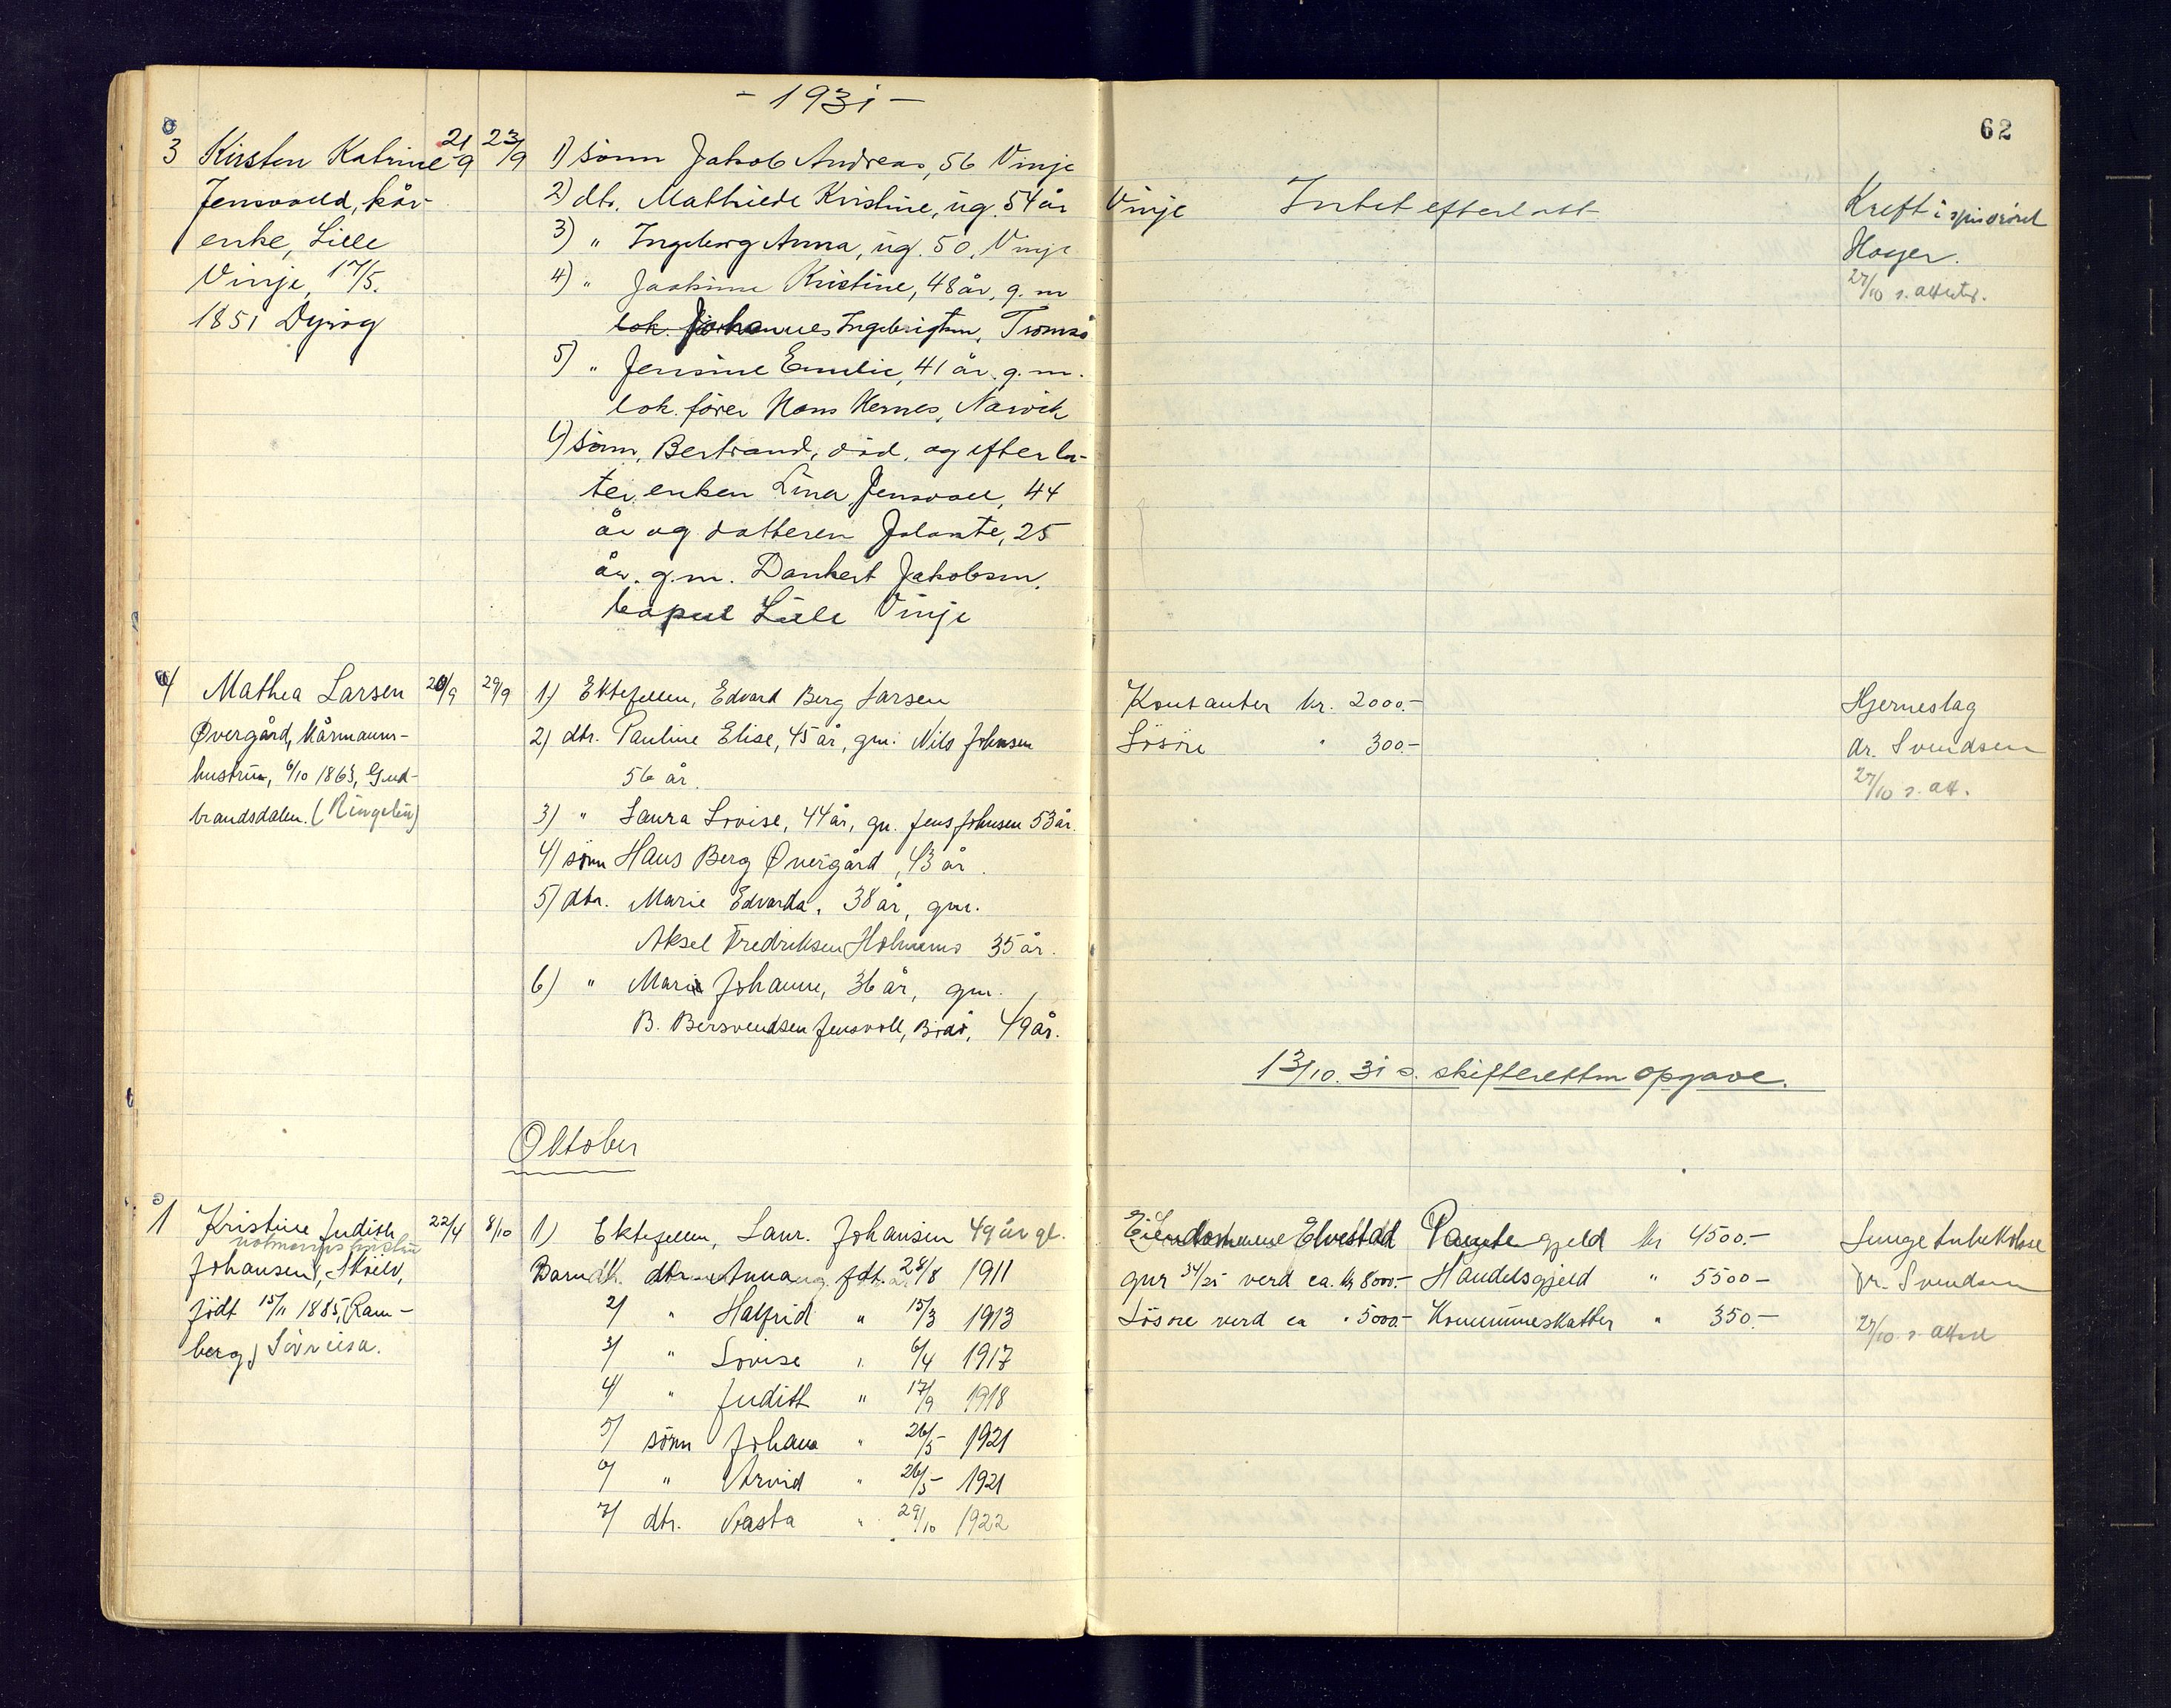 - 1931 -
62
3 Kirsten Katrine 21/9 23/9
Jensvold, kår-
enke, Lille
Vinje, 17/5.
1851 Dyrøy
1) sönn Jakob Andreas, 56 Vinje
2) dtr. Mathilde Kristine, ug. 54 år Vinje
3) " Ingeborg Anna, ug. 50, Vinje
4) " Jakobine Kristine, 48 år, g. m
lok. Johannes Ingebrigtsen, Tromsö
5) " Jensine Emilie, 41 år, g. m.
lok. förer Hans Hernes, Narvik
6) sönn, Bertrand, död, og efterla-
ter enken Lina Jensvoll, 44
år og datteren Jolante, 25
år. g. m. Dankert Jakobsen,
bopæl Lille Vinje
Intet efterlatt
Kreft i spiserøret
Høyer.
27/10 s. attest.
4 Mathea Larsen 20/9 29/9
Øvergård, kårmanns-
hustru, 6/10 1863, Gud-
brandsdalen. (Ringebu)
1) Ektefellen, Edvard Berg Larsen
2) dtr. Pauline Elise, 45 år, gm. Nils Johnsen
56 år.
3) " Laura Lovise, 44 år, gm. Jens Johnsen 53 år.
4) sönn Hans Berg Øvergård, 43 år.
5) dtr. Marie Edvarda, 38 år, gm.
Aksel Fredriksen Holmenes 35 år.
6) " Marie Johanne, 36 år, gm.
B. Bersvendsen Jensvoll, 49 år.
Kontanter kr. 2000.-
Lösöre " 300.-
Hjerneslag
dr. Svendsen
27/10 s. att.
13/10. 31 s. skifteretten opgave.
Oktober
1 Kristine Judith 22/4 8/10
Johansen, Skoelv,
födt 15/11 1885, Ram-
berg, Sörreisa.
1) Ektefellen, Laur. Johansen 49 år gl.
Barn dtr. Anna ug. fdt. 28/8 1911
2) " Halfrid " 15/3 1913
3) " Lovise " 6/4 1917
4) " Judith " 17/9 1918
5) sönn Johan " 26/5 1921
6) " Arvid " 26/5 1921
7) dtr. Nasta " 29/10 1922
Eiendommen Elvestad
gnr 34/25 verd ca. kr 8000.-
Lösöre verd ca " 5000.-
Pantegjeld kr 4500.-
Handelsgjeld " 5500.-
Kommuneskatter " 350.-
Lungetuberkulose
Dr. Svendsen
27/10 s. attest